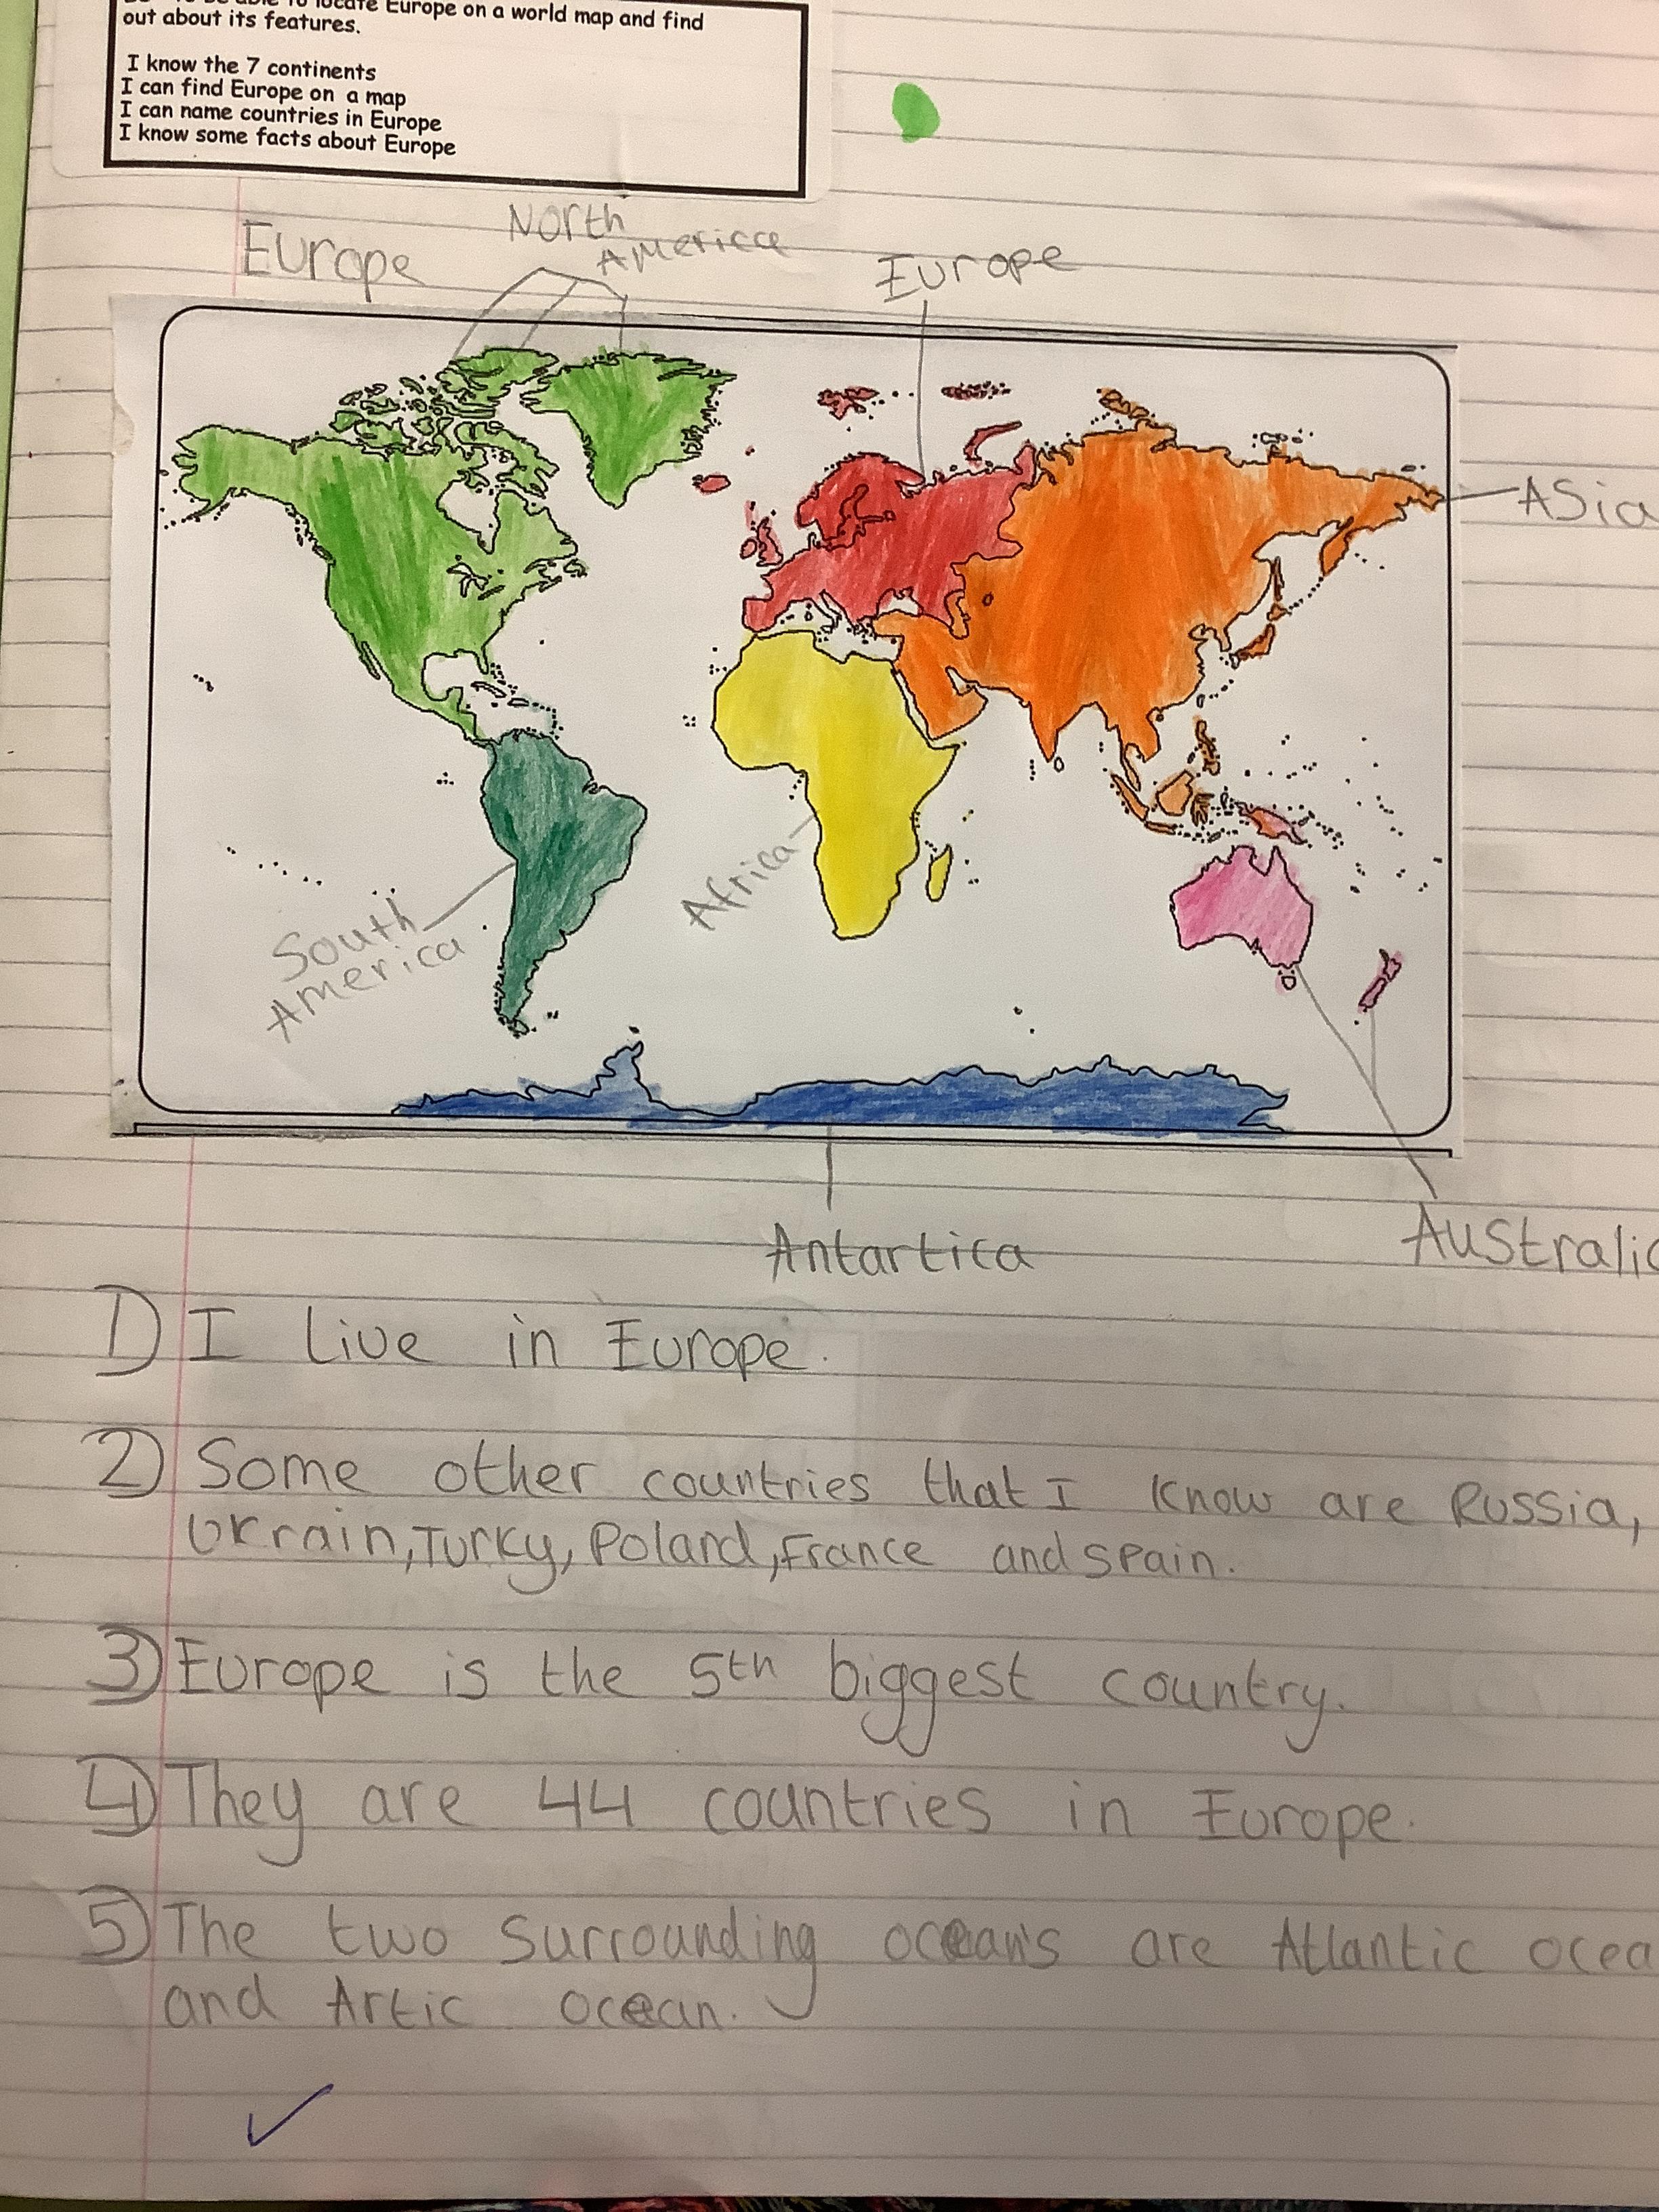 to locate Europe on a world map and find
out about its features.
I know the 7 continents
I can find Europe on a map
I can name countries in Europe
I know some facts about Europe
Europe
North
America
Europe
Asia
South
America
Africa
Antartica
Australia
1) I live in Europe.
2) Some other countries that I know are Russia,
Ukrain, Turky, Poland, France and Spain.
3) Europe is the 5th biggest country.
4) They are 44 countries in Europe.
5) The two surrounding oceans are Atlantic ocea
and Artic ocean.